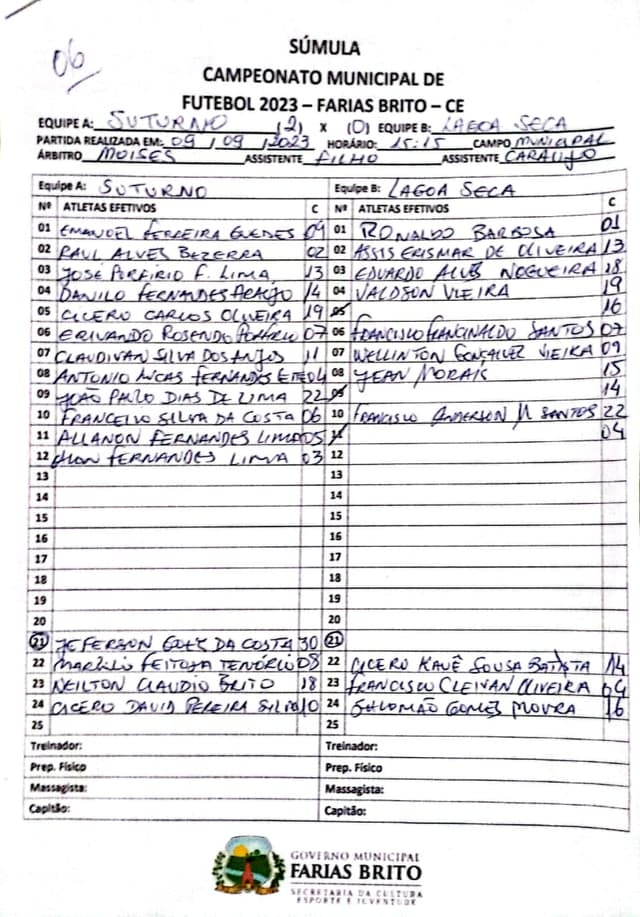 06
SÚMULA
CAMPEONATO MUNICIPAL DE
FUTEBOL 2023 – FARIAS BRITO – CE
EQUIPE A: SUTURNO (2) X (0) EQUIPE B: LAGOA SECA
PARTIDA REALIZADA EM: 09 / 09 / 2023 HORÁRIO: 15:15 CAMPO MUNICIPAL
ÁRBITRO MOISES ASSISTENTE FILHO ASSISTENTE CARAUJO
Equipe A: SUTURNO Equipe B: LAGOA SECA
Nº ATLETAS EFETIVOS C Nº ATLETAS EFETIVOS C
01 EMANOEL FERREIRA GUEDES 09 01 RONALDO BARBOSA 01
02 RAUL ALVES BEZERRA 02 02 ASSIS ERISMAR DE OLIVEIRA 13
03 JOSÉ PORFIRIO F. LIMA 13 03 EDUARDO ALVES NOGUEIRA 18
04 DANILO FERNANDES ARAUJO 14 04 VALDSON VIEIRA 19
05 CICERO CARLOS OLIVEIRA 19 05 16
06 ERIVANDO ROSENDO PORFIRIO 07 06 FRANCISCO FRANCINALDO SANTOS 07
07 CLAUDIVAN SILVA DOS ANJOS 11 07 WELLINTON GONÇALVEZ VIEIRA 09
08 ANTONIO LUCAS FERNANDES 04 08 JEAN MORAIS 15
09 JOÃO PAULO DIAS DE LIMA 22 09 14
10 FRANCEIVO SILVA DA COSTA 06 10 FRANCISCO ANDERSON M SANTOS 22
11 ALLANON FERNANDES LIMA 05 11 04
12 FERNANDES LIMA 03 12
13 13
14 14
15 15
16 16
17 17
18 18
19 19
20 20
21 JEFERSON GOES DA COSTA 30 21
22 FEITOJA TENÓRIO 08 22 CICERO KAUÊ SOUSA BATISTA 14
23 NEILTON CLAUDIO BRITO 18 23 FRANCISCO CLEIVAN OLIVEIRA 04
24 CICERO DAVID PEREIRA SILVA 10 24 SALOMÃO GOMES MOURA 16
25 25
Treinador: Treinador:
Prep. Físico Prep. Físico
Massagista: Massagista:
Capitão: Capitão:
GOVERNO MUNICIPAL
FARIAS BRITO
SECRETARIA DA CULTURA
ESPORTE E JUVENTUDE